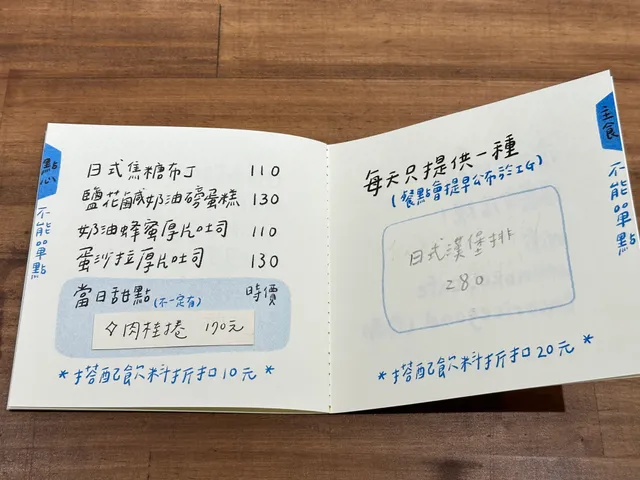 點心
不能單點
日式焦糖布丁 110
鹽花鹹奶油磅蛋糕 130
奶油蜂蜜厚片吐司 110
蛋沙拉厚片吐司 130
當日甜點(不一定有) 時價
肉桂捲 170元
*搭配飲料折扣10元*
主食
不能單點
每天只提供一種
(餐點會提早公布於IG)
日式漢堡排
280
*搭配飲料折扣20元*